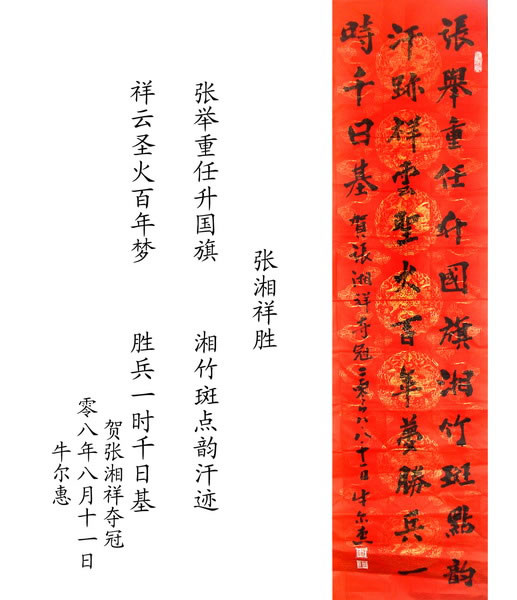 張舉重任升國旗湘竹斑點韵
汗跡祥雲聖火百年夢勝兵一
時千日基
賀張湘祥夺冠二零零八八十一日牛尔惠
张湘祥胜
张举重任升国旗 湘竹斑点韵汗迹
祥云圣火百年梦 胜兵一时千日基
贺张湘祥夺冠
零八年八月十一日
牛尔惠